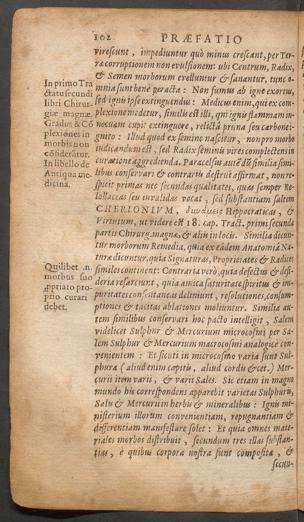 102 PRÆFATIO
virescunt, impediuntur quò minus crescant, per Ter-
ræ corruptionem non evulsionem: ubi Centrum, Radix,
& Semen morborum evelluntur & sanantur, tunc o-
mnia sunt benè peracta: Non fumus ab igne exortus,
sed ignis ipse extinguendus: Medicus enim, qui ex com-
plexione medetur, similis est illi, qui ignis flammam in-
necuam cupit extinguere, relictâ pruna seu carbone i-
gnito: Illud quod ex semine nascitur, non pro morbo
judicandum est, sed Radix seminis vires complectens in
curatione aggredienda. Paracelsus autē dū similia simi-
libus conservari & contrariis destrui affirmat, nonre-
spicit primas nec secundas qualitates, quas semper Re-
lollaceas seu curalidas vocat, sed substantiam saltem
CHERIONIVM, Hippocraticas, &
Virtutum, ut videre est 18. cap. Tract. primi secundæ
partis Chirurg. magnæ, & alibi in locis. Similia dicun-
tur morborum Remedia, quia ex eâdem Anatomiâ Na-
turæ dicuntur, quia Signaturas, Proprietates & Radices
similes continent: Contraria verò, quia defectus & desi-
deria resarciunt, quia amica saturitate spiritus & im-
puritates deliniunt, resolutiones, consum-
ptiones & tacitas ablationes moliuntur. Similia au-
tem similibus conservari hoc pacto intelligit, Salem
videlicet Sulphur & Mercurium microcosmi per Sa-
lem Sulphur & Mercurium macrocosmi analogicè con-
venientem: Et sicuti in microcosmo varia sunt Sul-
phura (aliud enim capitis, aliud cordis & cet.) Mer-
curii item varii, & varii Sales. Sic etiam in magno
mundo his correspondens apparebit varietas Sulphuru,
Salu & Mercurii in herbis & mineralibus: Ignis mi-
nisterium illorum convenientiam, repugnantiam &
differentiam manifestare solet: Et quia omnes mate-
riales morbos distribuit, secundum tres illas substan-
tias, è quibus corpora nostra sunt composita, &
secun-
In primo Tra
ctatu secundi
libri Chirur-
giæ magnæ.
Gradus & Cō
plexiones in
morbis non
cōsiderātur.
In libello de
Antiqua me-
dicina.
Quilibet .n.
morbus suo
appriato pro-
prio curari
debet.